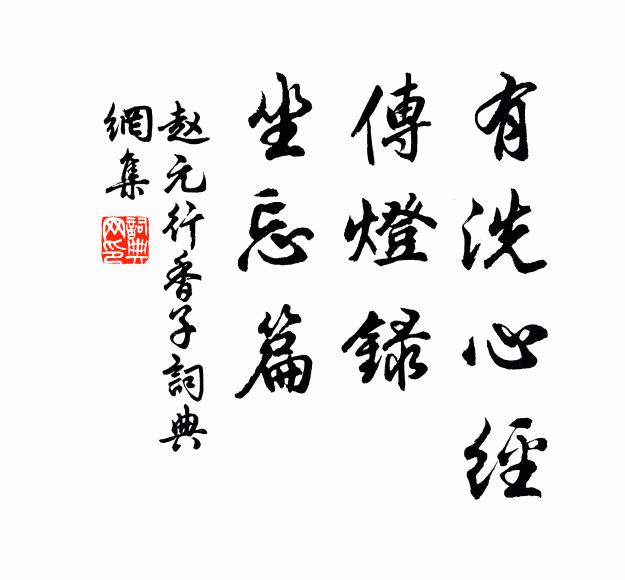 有洗心經
傳燈錄
坐忘篇
赵元行香子詞典
網集
詞典
网印